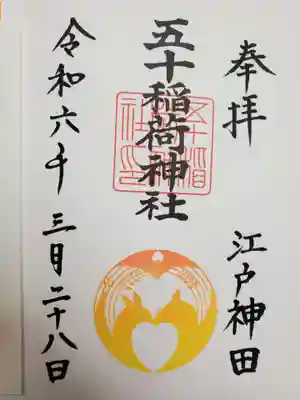 奉拝
江戸神田
五十稲荷神社
令和六年三月二十八日